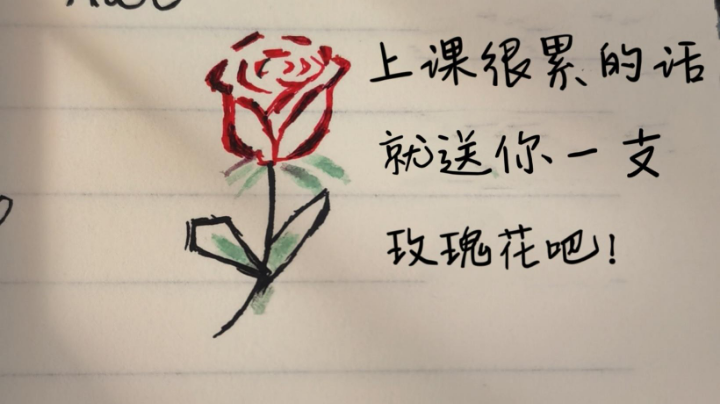 上课很累的话
就送你一支
玫瑰花吧!